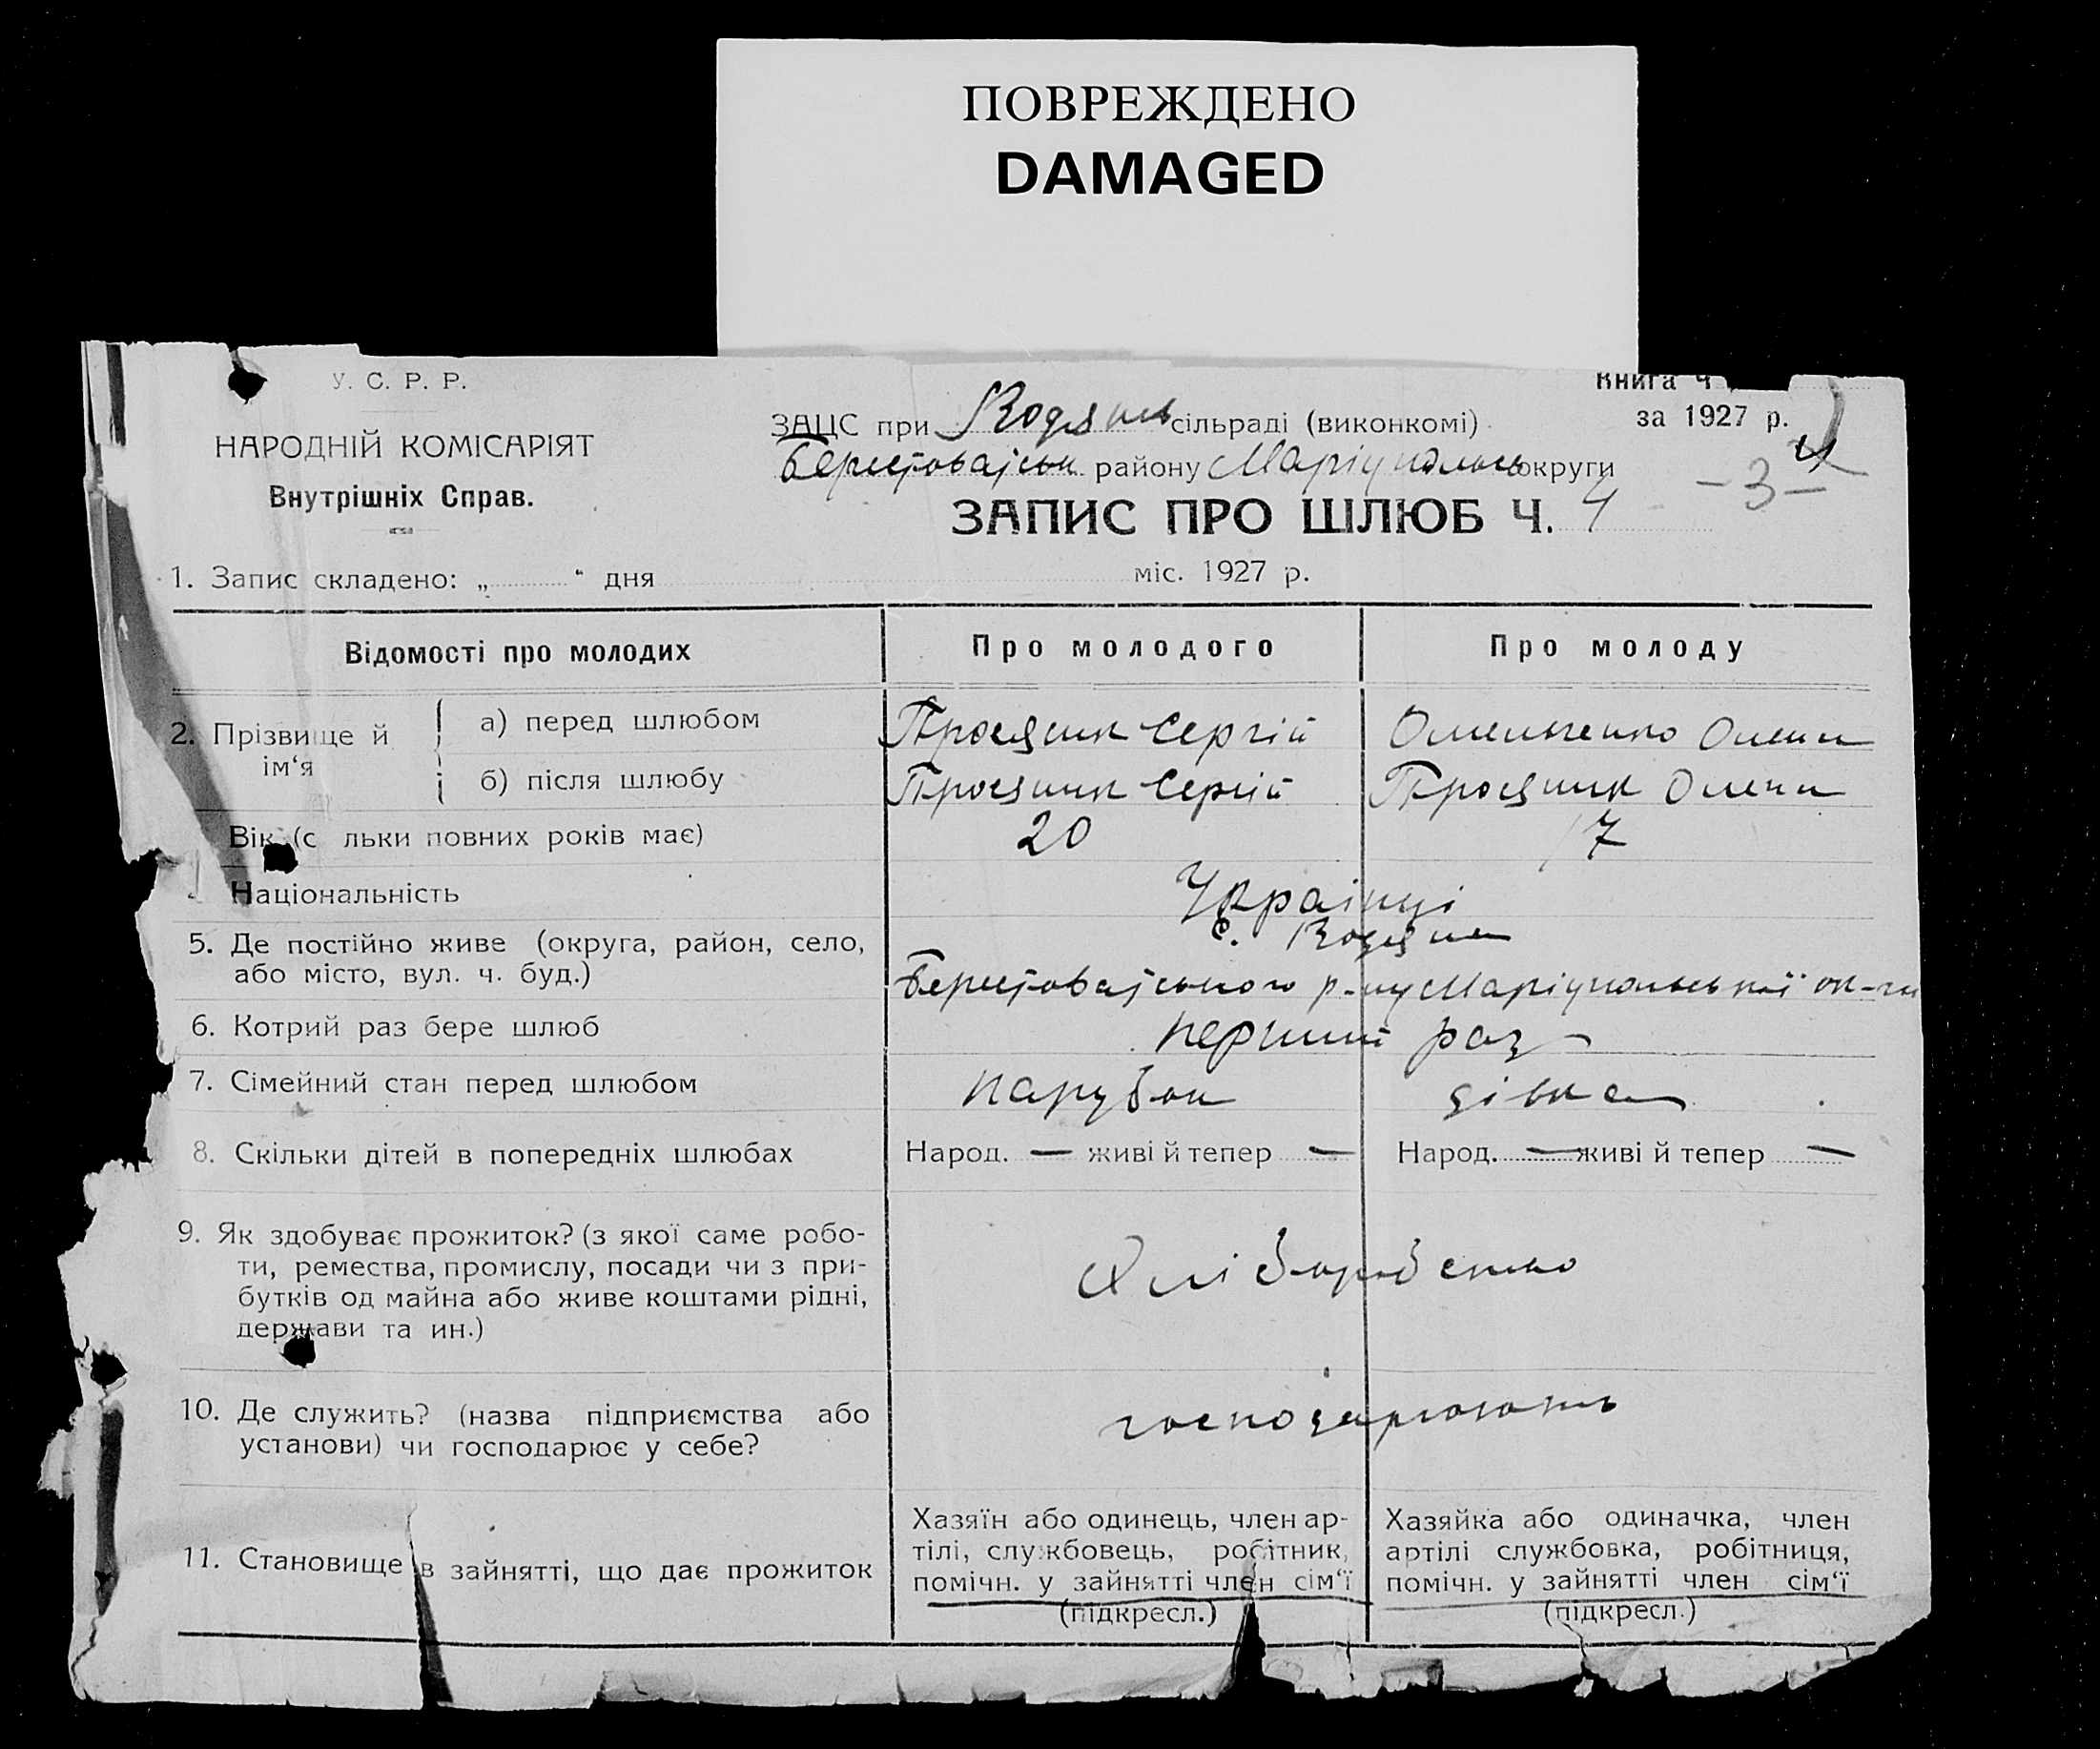 ПОВРЕЖДЕНО
DAMAGED
У. С. Р. Р.
НАРОДНІЙ КОМІСАРІЯТ
Внутрішніх Справ.
Книга Ч
за 1927 р.
ЗАЦС при Водянь сільраді (виконкомі)
Берестоватськ району Маріупольськ округи
4
- 3 -
ЗАПИС ПРО ШЛЮБ Ч. 4
1. Запис складено: „ “ дня міс. 1927 р.
Відомості про молодих Про молодого Про молоду
2. Прізвище й ім‘я
а) перед шлюбом Сергій Омельченко Олена
б) після шлюбу Сергій Олена
Вік (с льки повних років має) 20 17
Національність Українці
5. Де постійно живе (округа, район, село, с. Водяна
або місто, вул. ч. буд.) Берестоватського р-ну Маріупольської ок-ги
6. Котрий раз бере шлюб перший раз
7. Сімейний стан перед шлюбом парубок дівка
8. Скільки дітей в попередніх шлюбах Народ. — живі й тепер — Народ. — живі й тепер —
9. Як здобуває прожиток? (з якої саме робо-
ти, ремества, промислу, посади чи з при-
бутків од майна або живе коштами рідні,
держави та ин.)
Хліборобство
10. Де служить? (назва підприємства або
установи) чи господарює у себе?
господарюють
11. Становище в зайнятті, що дає прожиток
Хазяїн або одинець, член ар-
тілі, службовець, робітник,
помічн. у зайнятті член сім‘ї
(підкресл.)
Хазяйка або одиначка, член
артілі службовка, робітниця,
помічн. у зайнятті член сім‘ї
(підкресл.)